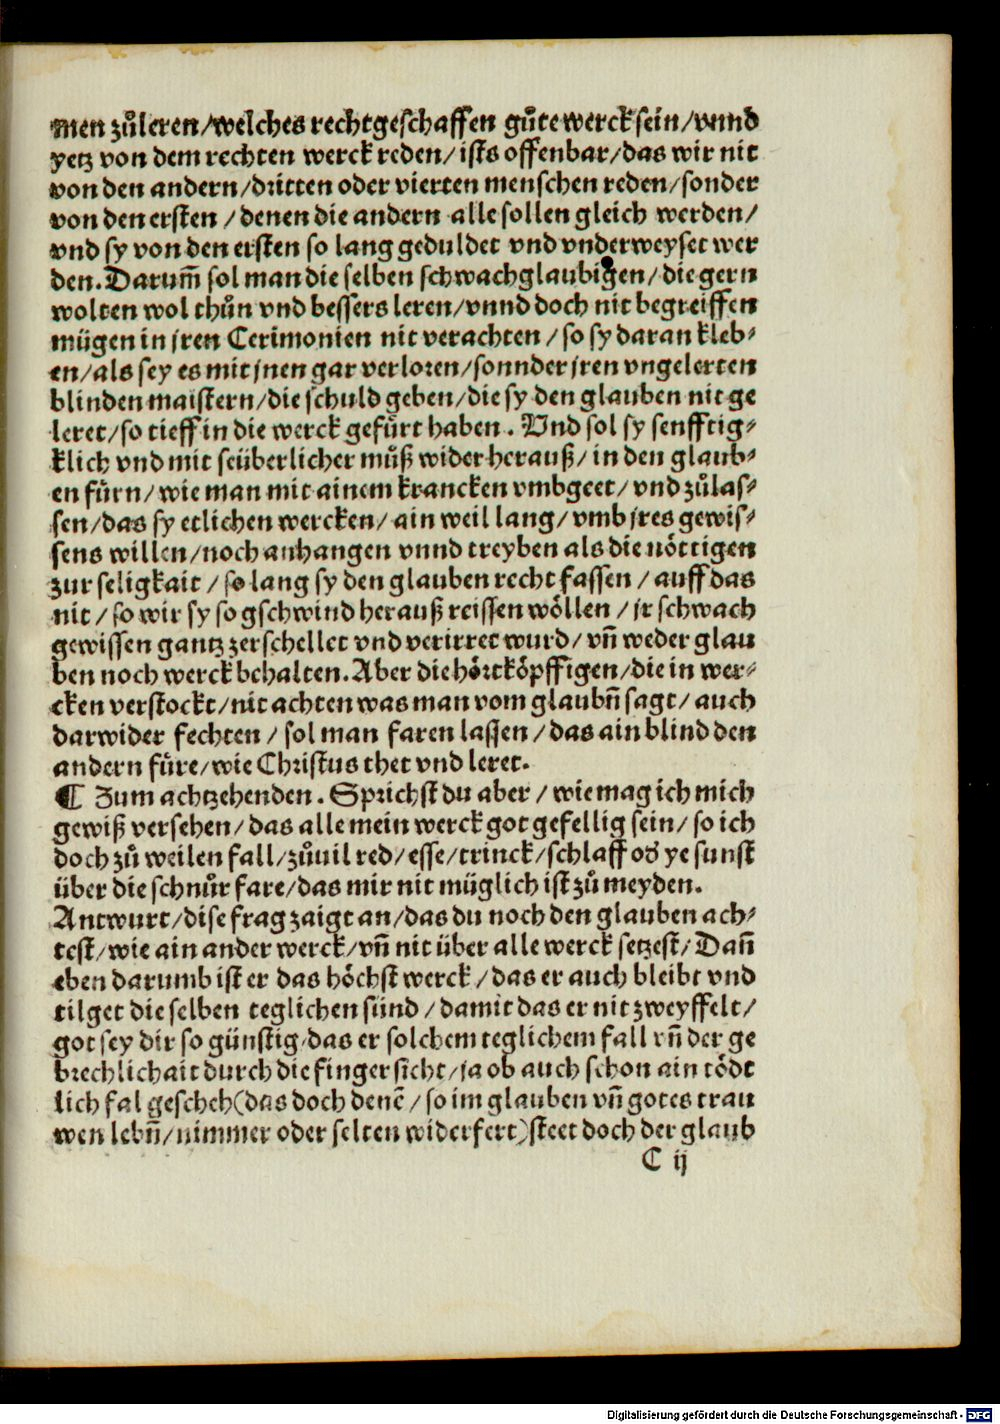 men zů leren/welches rechtgeschaffen gůte werck sein/vnnd
yetz von dem rechten werck reden/ists offenbar/das wir nit
von den andern/dritten oder vierten menschen reden/sonder
von den ersten /denen die andern alle sollen gleich werden/
vnd sy von den ersten so lang geduldet vnd vnderweyset wer
den. Darum̃ sol man die selben schwachglaubigen/die gern
wolten wol thůn vnd bessers leren/vnnd doch nit begreiffen
mügen in jren Cerimonien nit verachten /so sy daran kleb⸗
en/als sey es mit jnen gar verloren/sonnder jren vngelerten
blinden maistern/die schuld geben/die sy den glauben nit ge
leret/so tieff in die werck gefürt haben . Vnd sol sy senfftig⸗
klich vnd mit seüberlicher můß wider herauß/in den glaub⸗
en fürn/wie man mit ainem krancken vmbgeet/vnd zůlas⸗
sen/das sy etlichen wercken/ain weil lang/vmb jres gewis⸗
sens willen/noch anhangen vnnd treyben als die nöttigen
zur seligkait /so lang sy den glauben recht fassen /auff das
nit /so wir sy so gschwind herauß reissen wöllen /jr schwach
gewissen gantz zerschellet vnd verirret wurd/vñ weder glau
ben noch werck behalten. Aber die hörtköpffigen/die in wer⸗
cken verstockt/nit achten was man vom glaubñ sagt/auch
darwider fechten /sol man faren lassen /das ain blind den
andern füre/wie Christus thet vnd leret.
¶ Zum achtzehenden . Sprichst du aber /wie mag ich mich
gewiß versehen/das alle mein werck got gefellig sein/so ich
doch zů weilen fall/zůuil red/esse/trinck/schlaff oď ye sunst
über die schnůr fare/das mir nit müglich ist zů meyden.
Antwurt/dise frag zaigt an/das du noch den glauben ach⸗
test/wie ain ander werck/vñ nit über alle werck setzest/Dañ
eben darumb ist er das höchst werck /das er auch bleibt vnd
tilget die selben teglichen sünd /damit das er nit zweyffelt/
got sey dir so günstig/das er solchem teglichem fall vñ der ge
brechlichait durch die finger sicht/ja ob auch schon ain tödt
lich fal gescheh(das doch denē /so im glauben vñ gotes trau
wen lebñ/nimmer oder selten widerfert)steet doch der glaub
C ij
Digitalisierung gefördert durch die Deutsche Forschungsgemeinschaft - DFG